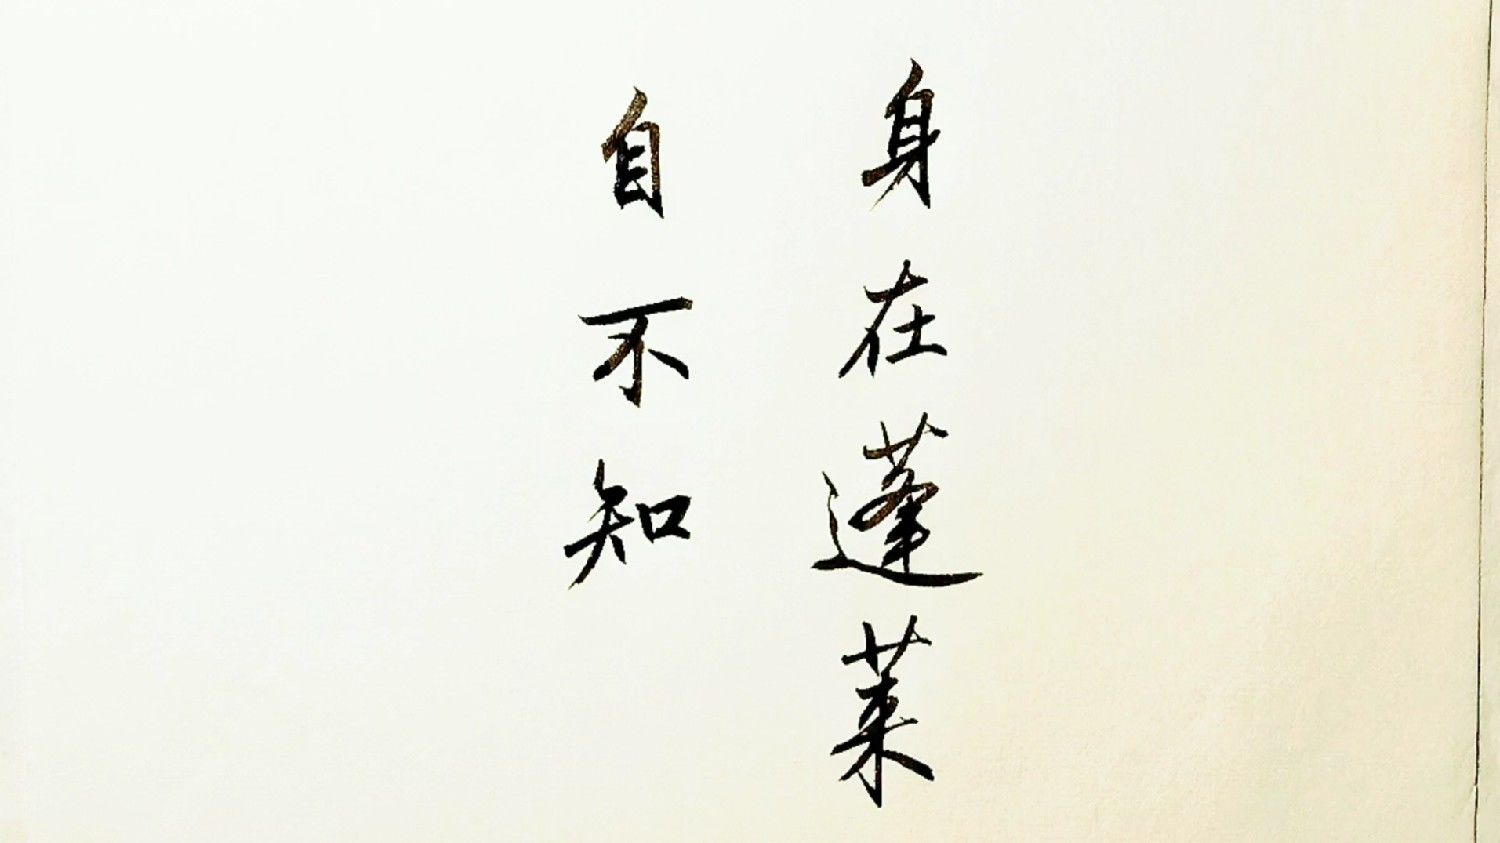 身在蓬莱
自不知